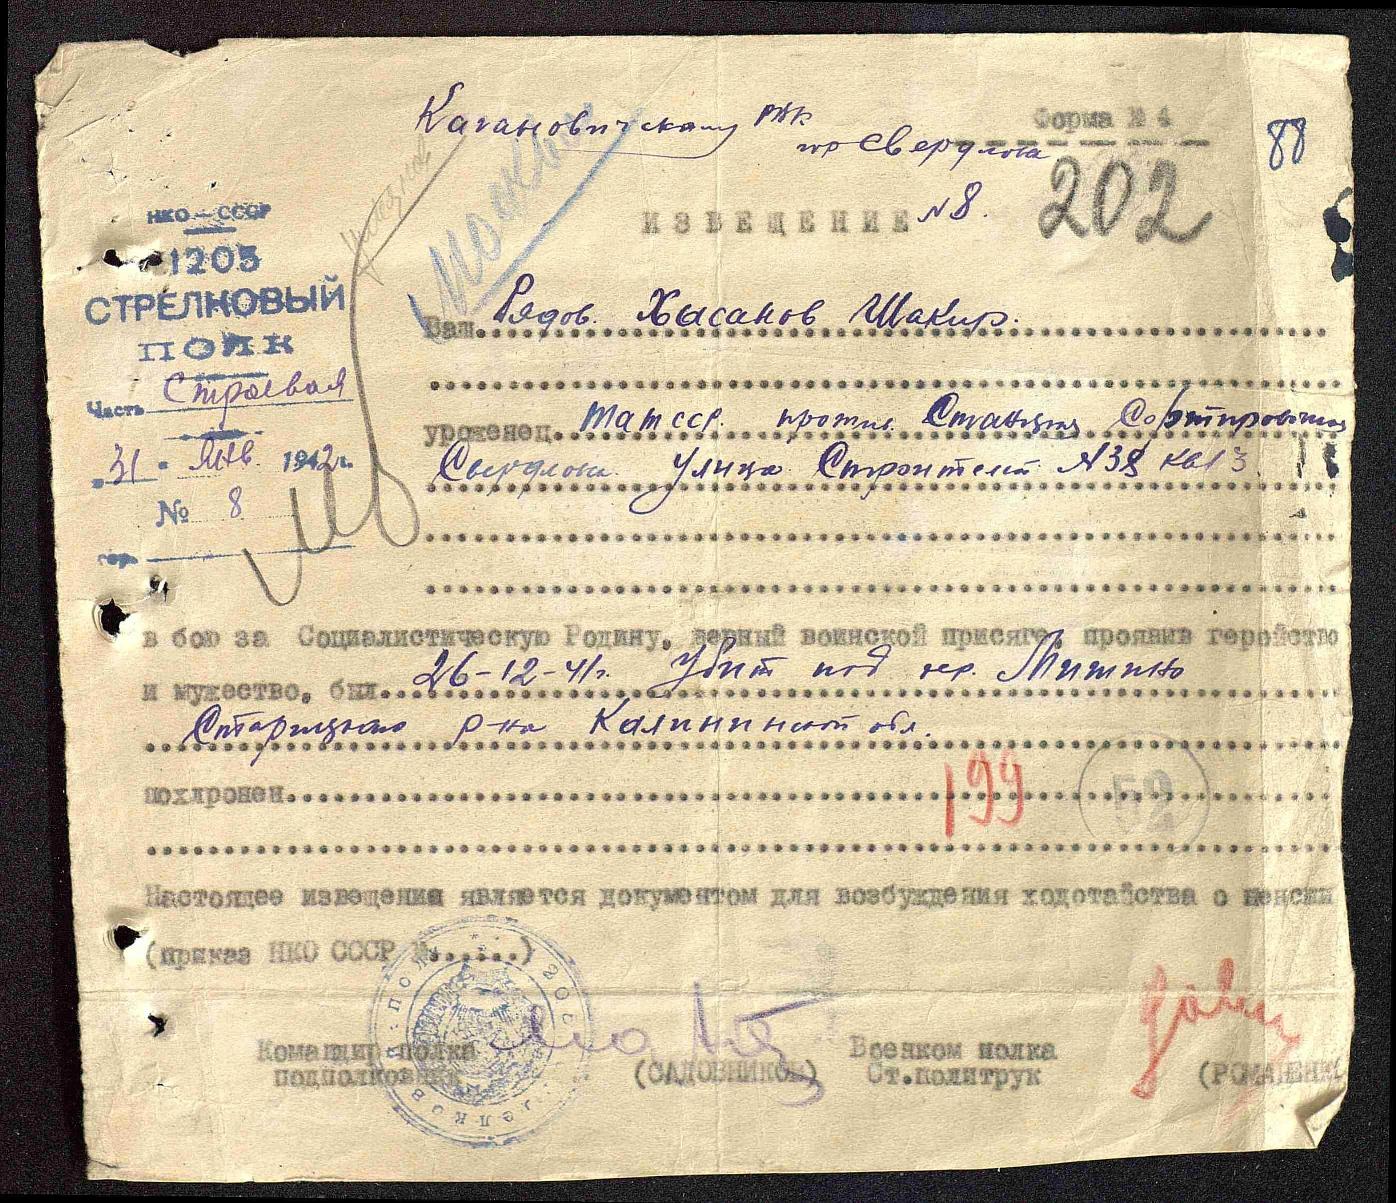 Кагановичскому РВК
гор Свердлова
Форма № 4
88
202
ИЗВЕЩЕНИЕ №8.
НКО — СССР
1205
СТРЕЛКОВЫЙ
ПОЛК
Часть Строевая
"31" Янв. 1942г.
№ 8
гор.
Ваш Рядов. Хасанов Шакир.
уроженец Татсср. против Станция Сортировочная
Свердлова улица Строителей №38 кв13
в бою за Социалистическую Родину, верный воинской присяге, проявив геройство
и мужество, был 26-12-41г. Убит под дер. Митино
Старицкого р-на Калининской обл.
похлронен
199
52
Настоящее извещение является документом для возбуждения ходотайства о пенсии
(приказ НКО СССР №......)
Командир полка
подполковник
(САДОВНИКОВ)
Военком полка
Ст.политрук
(РОМАНЕНКО